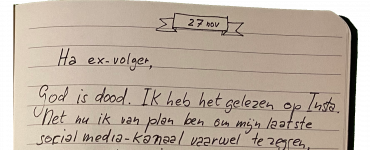 27 nov
Ha ex-volger,
God is dood. Ik heb het gelezen op Insta.
Net nu ik van plan ben om mijn laatste
social media-kanaal vaarwel te zeggen,